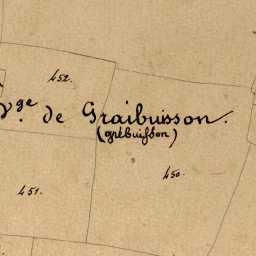 452.
V.ge de Graibuisson.
(gribuisson)
450.
451.